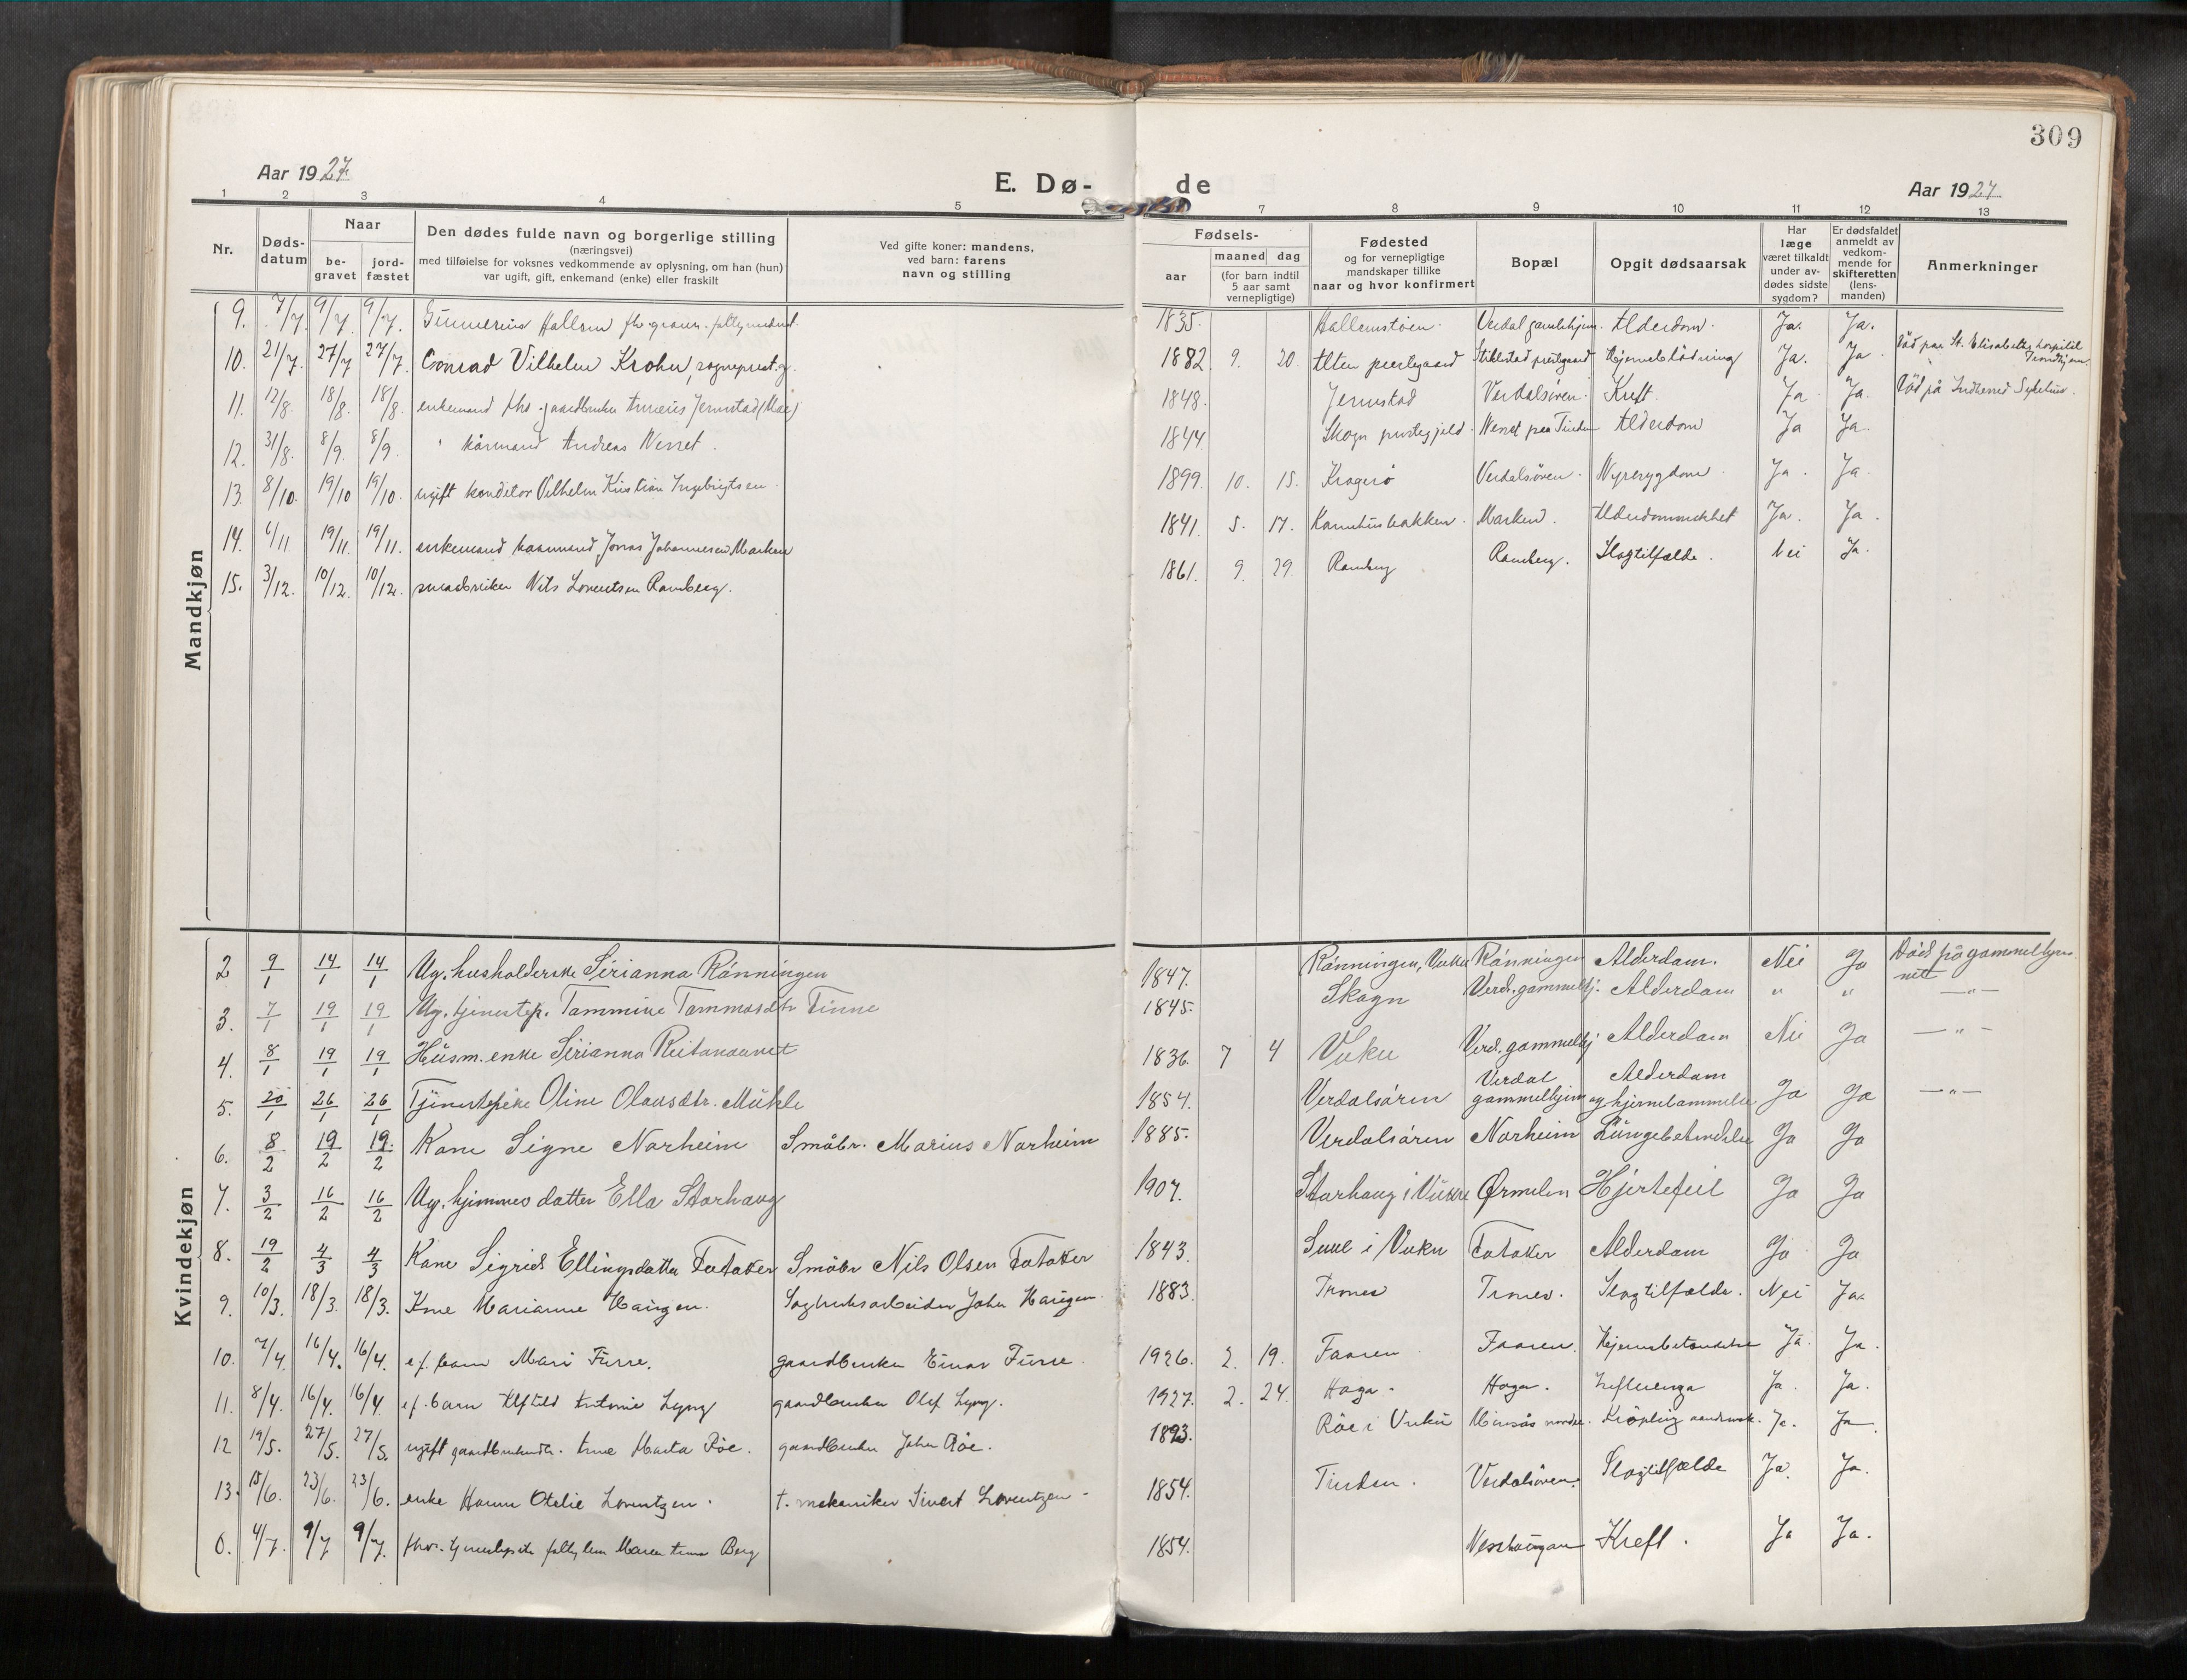 309
Aar 1927
E. Dø-
de
Aar 1927
1 2 3 4 5 7 8 9 10 11 12 13
Nr.
Døds-
datum
Naar
be-
gravet
jord-
fæstet
Den dødes fulde navn og borgerlige stilling
(næringsvei)
med tilføielse for voksnes vedkommende av oplysning, om han (hun)
var ugift, gift, enkemand (enke) eller fraskilt
Ved gifte koner: mandens,
ved barn: farens
navn og stilling
Fødsels-
aar
maaned dag
(for barn indtil
5 aar samt
vernepligtige)
Fødested
og for vernepligtige
mandskaper tillike
naar og hvor konfirmert
Bopæl
Opgit dødsaarsak
Har
læge
været tilkaldt
under av-
dødes sidste
sygdom?
Er dødsfaldet
anmeldt av
vedkom-
mende for
skifteretten
(lens-
manden)
Anmerkninger
Mandkjøn
9. 7/7. 9/7. 9/7. Gunnerius Hallem 1835. Hallemstøen. Verdal gamlehjem. Alderdom. Ja. Ja.
10. 21/7. 27/7 27/7. Conrad Vilhelm Krohn, sogneprest. g. 1882. 9. 20. Alten prestegaard Stiklestad prestegaard Hjerneblødning Ja. Ja. Död paa St. Elisabeths hospital Trondhjem.
11. 12/8. 18/8. 18/8. enkemand fhv. gaardbruker Jermstad 1848. Jermstad Verdalsøren. Kreft. Ja Ja. Död på Indherred Sykehus.
12. 31/8. 8/9. 8/9. " kårmand Andreas Nesset. 1844. Skogn prestegjeld. Nesset paa Tinden Alderdom Ja Ja.
13. 8/10. 19/10 19/10. ugift konditor Vilhelm Kristian Ingebrigtsen. 1899. 10. 15. Kragerö Verdalsören. Nyresygdom Ja. Ja.
14. 6/11. 19/11. 19/11. enkemand kaarmand Jonas Johannesen Marken 1841. 5. 17. Marken. Alderdomssvakhet Ja. Ja.
15. 3/12. 10/12. 10/12. smaabruker Nils Lorentsen Ramberg. 1861. 9. 29. Ramberg Ramberg. Slagtilfælde. Nei Ja.
Kvindekjøn
2 9/1 14/1 14/1 Ug. husholderske Sirianna Rönningen 1847. Rönningen, Vuku Rönningen Alderdom. Nei Ja Död på gammelhjem-
met
3. 7/1 19/1 19/1 Ug. tjenestep. Tammine Tommasdtr Tinne 1845. Skogn Verd. gammelhj. Alderdom " " —"—
4. 8/1 19/1 19/1 Husm. enke Sirianna 1836. 7 4 Vuku Verd. gammelhj Alderdom Nei Ja —"—
5. 20/1 26/1 26/1 Tjenestepike Oline Olausdtr. Mikle 1854. Verdalsören Verdal gammelhjem Alderdom og hjernelammelse Ja Ja —"—
6. 8/2 19/2 19/2 Kone Signe Norheim Småbr. Marius Norheim 1885. Verdalsören Norheim Lungebetændelse Ja Ja
7. 3/2 16/2 16/2 Ug. hjemmev datter Ella Storhaug 1907. Storhaug i Vuku Ørmelen Hjertefeil Ja Ja
8. 19/2 4/3 4/3 Kone Sigrid Ellingsdatter Fætaker Småbr Nils Olsen Fætaker 1843. Suul i Vuku Fætaker Alderdom Ja Ja
9. 10/3. 18/3. 18/3. Kone Marianne Haugen. Sagbruksarbeider Johan Haugen. 1883. Trones Trones. Slagtilfælde. Nei Ja.
10. 7/4. 16/4. 16/4. e.f. barn Mari Furre. gaardbruker Einar Furre. 1926. 2. 19. Faaren Faaren. Hjernebetændelse Ja. Ja.
11. 8/4. 16/4. 16/4. e.f. barn Alfhild Antonie Lyng gaardbruker Olaf Lyng. 1927. 2. 24. Haga. Haga. Influenza Ja. Ja.
12 19/5. 27/5. 27/5. ugift Marta Röe. gaardbruker Johan Röe. Röe i Vuku Ja. Ja
13. 15/6. 23/6. 23/6. enke Hanna Otelie Lorentzen. f. mekaniker Sivert Lorentzen. 1854. Tinden. Verdalsören. Slagtilfælde Ja. Ja.
6. 4/7. 9/7 9/7. fhv. tjenestepike Maren Berg 1854. Kreft. Ja Ja.